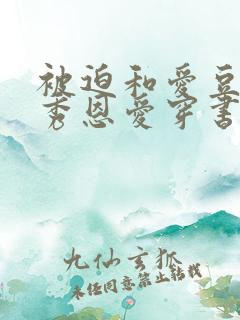 被迫和爱豆
秀恩爱穿书
九仙玄狐
未经同意禁止转载